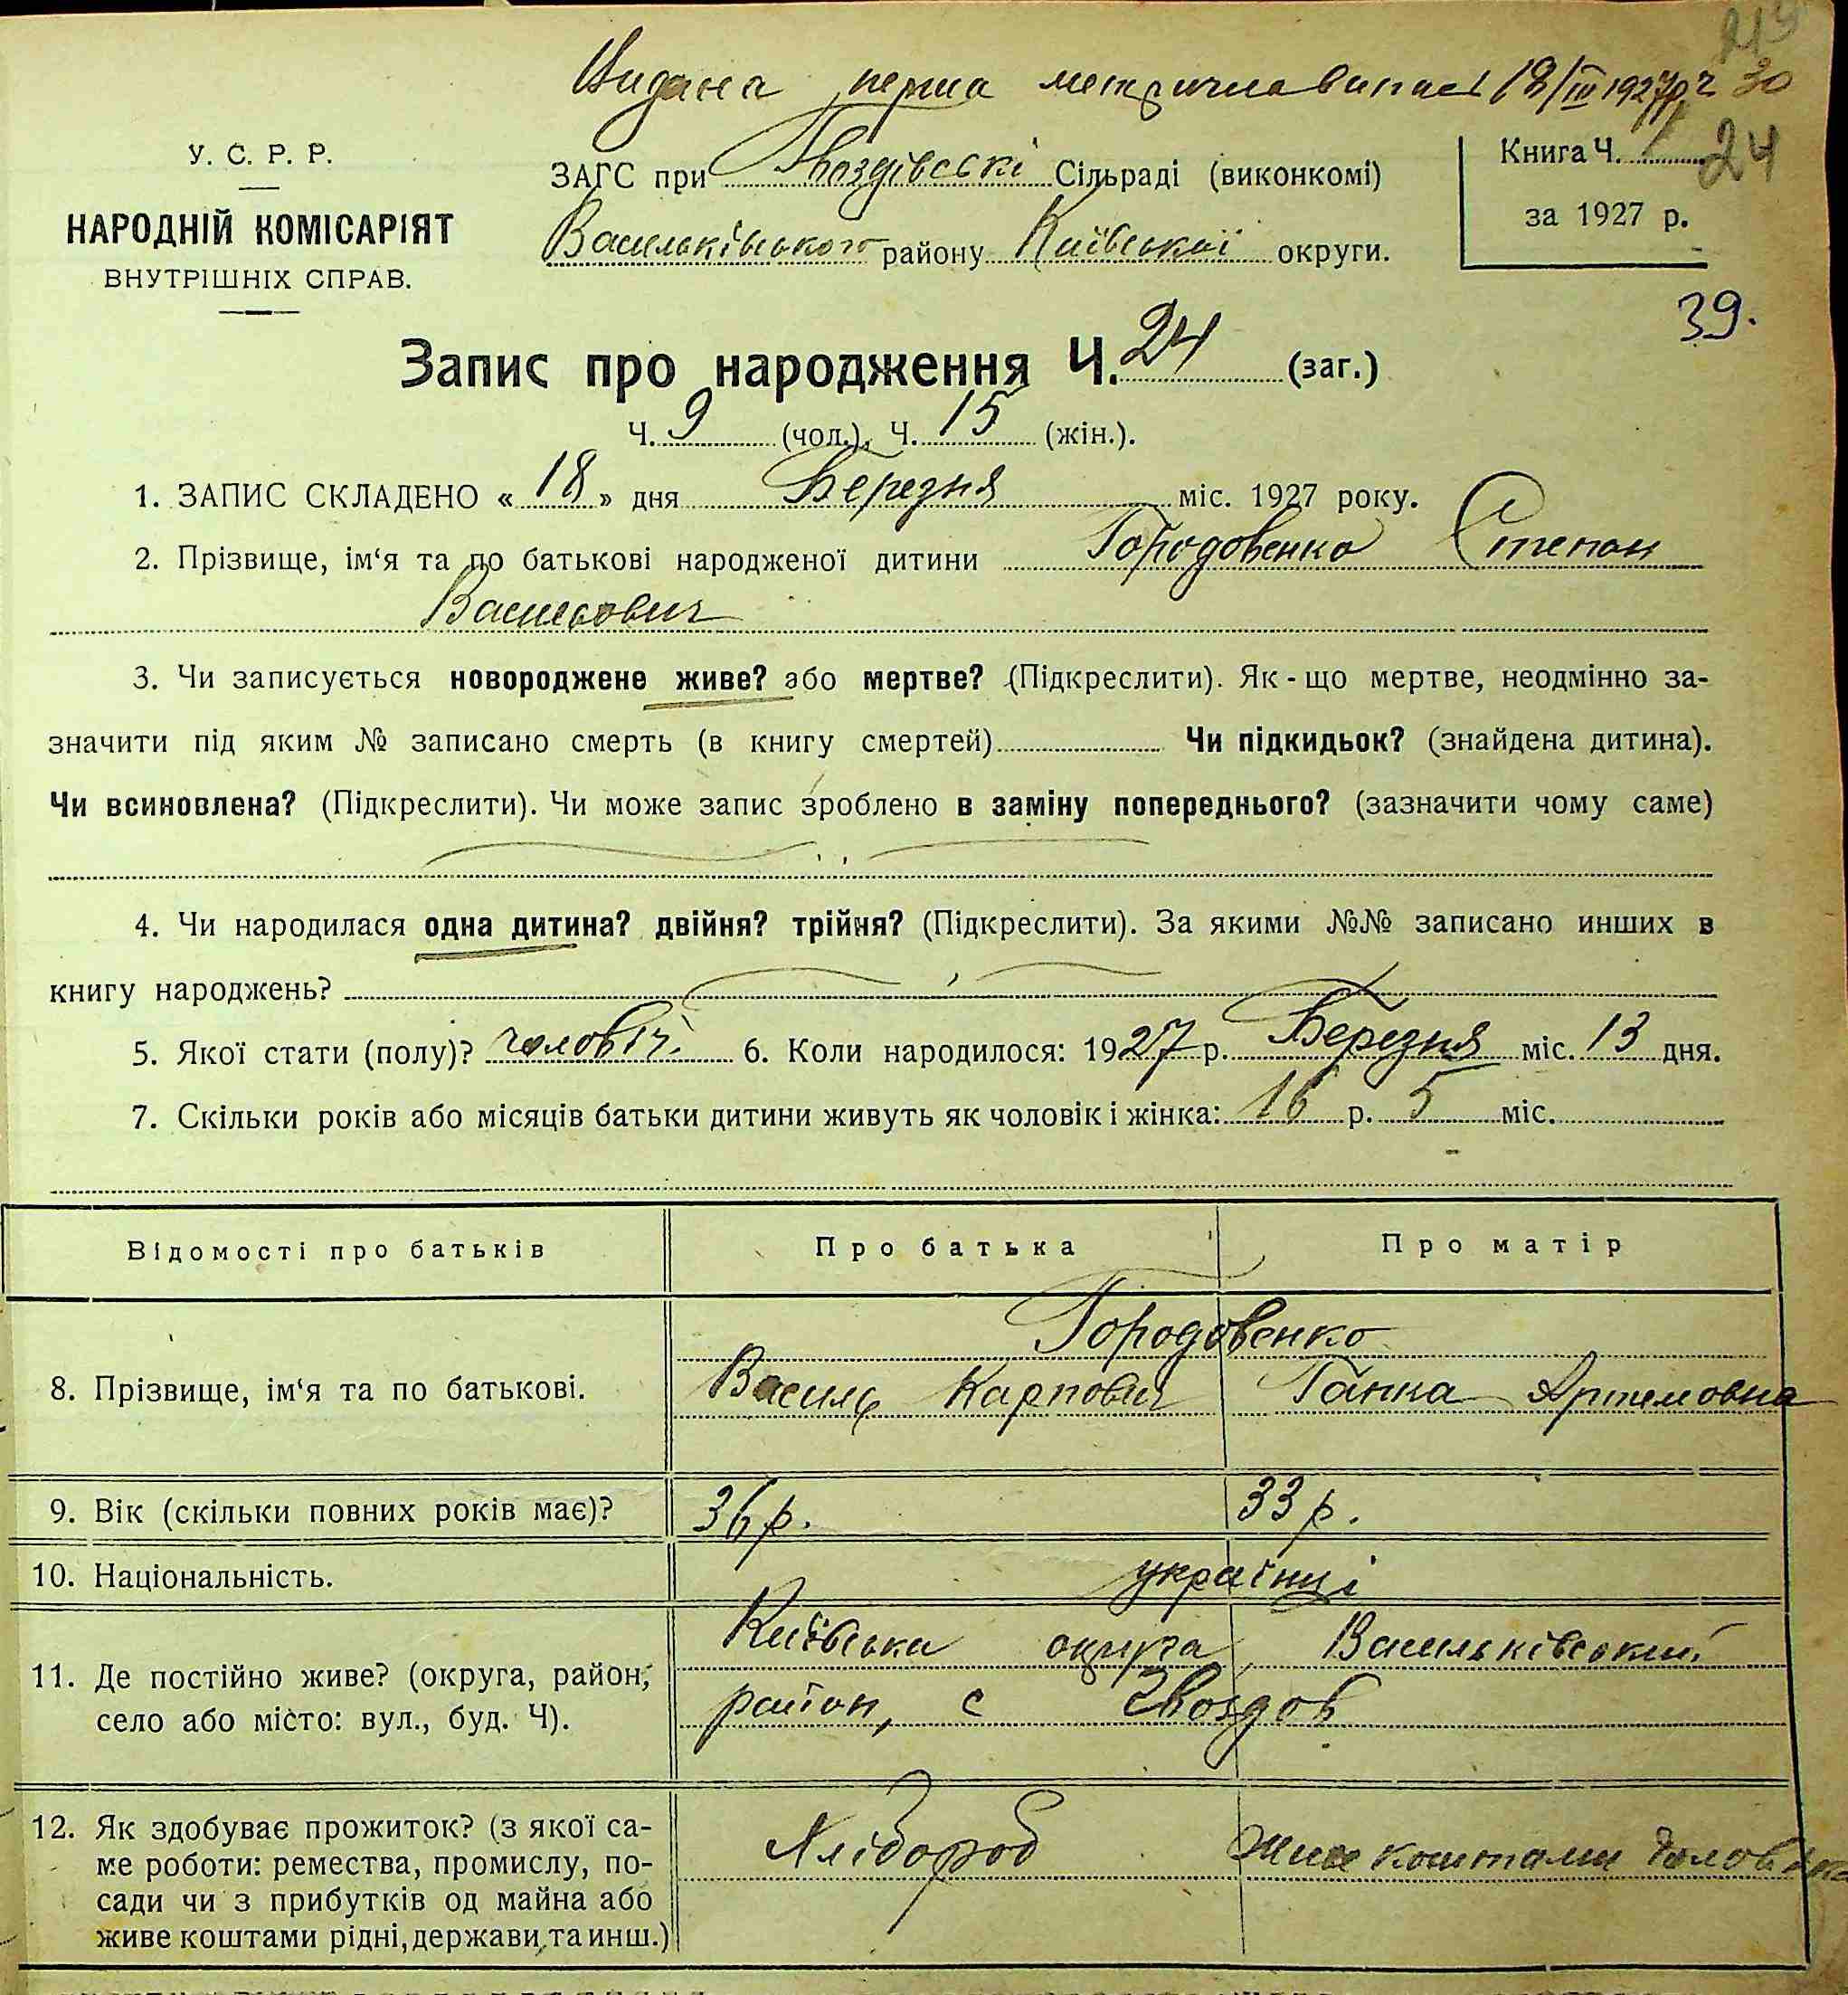 219
Видана перша метрична випись 18/III 1927р. ч 30
У. С. Р. Р.
НАРОДНІЙ КОМІСАРІЯТ
ВНУТРІШНІХ СПРАВ.
ЗАГС при Гвоздівські Сільраді (виконкомі)
Васильківського району Київської округи.
Книга Ч. 1
24
за 1927 р.
39.
Запис про народження Ч. 24 (заг.)
Ч. 9 (чол.), Ч. 15 (жін.).
1. ЗАПИС СКЛАДЕНО « 18 » дня Березня міс. 1927 року.
2. Прізвище, ім‘я та по батькові народженої дитини Городовенко Степан
Васильович
3. Чи записується новороджене живе? або мертве? (Підкреслити). Як-що мертве, неодмінно за-
значити під яким № записано смерть (в книгу смертей) Чи підкидьок? (знайдена дитина).
Чи всиновлена? (Підкреслити). Чи може запис зроблено в заміну попереднього? (зазначити чому саме)
4. Чи народилася одна дитина? двійня? трійня? (Підкреслити). За якими №№ записано инших в
книгу народжень?
5. Якої стати (полу)? чоловіч. 6. Коли народилося: 1927 р. Березня міс. 13 дня.
7. Скільки років або місяців батьки дитини живуть як чоловік і жінка: 16 р. 5 міс.
Відомості про батьків Про батька Про матір
Городовенко
8. Прізвище, ім‘я та по батькові. Василь Карпович Ганна Артемовна
9. Вік (скільки повних років має)? 36 р. 33 р.
10. Національність. українці
Київська округа, Васильківський
11. Де постійно живе? (округа, район, район, с Гвоздов
село або місто: вул., буд. Ч).
12. Як здобуває прожиток? (з якої са- Хлібороб Живе коштами чоловіка
ме роботи: ремества, промислу, по-
сади чи з прибутків од майна або
живе коштами рідні, держави, та инш.)